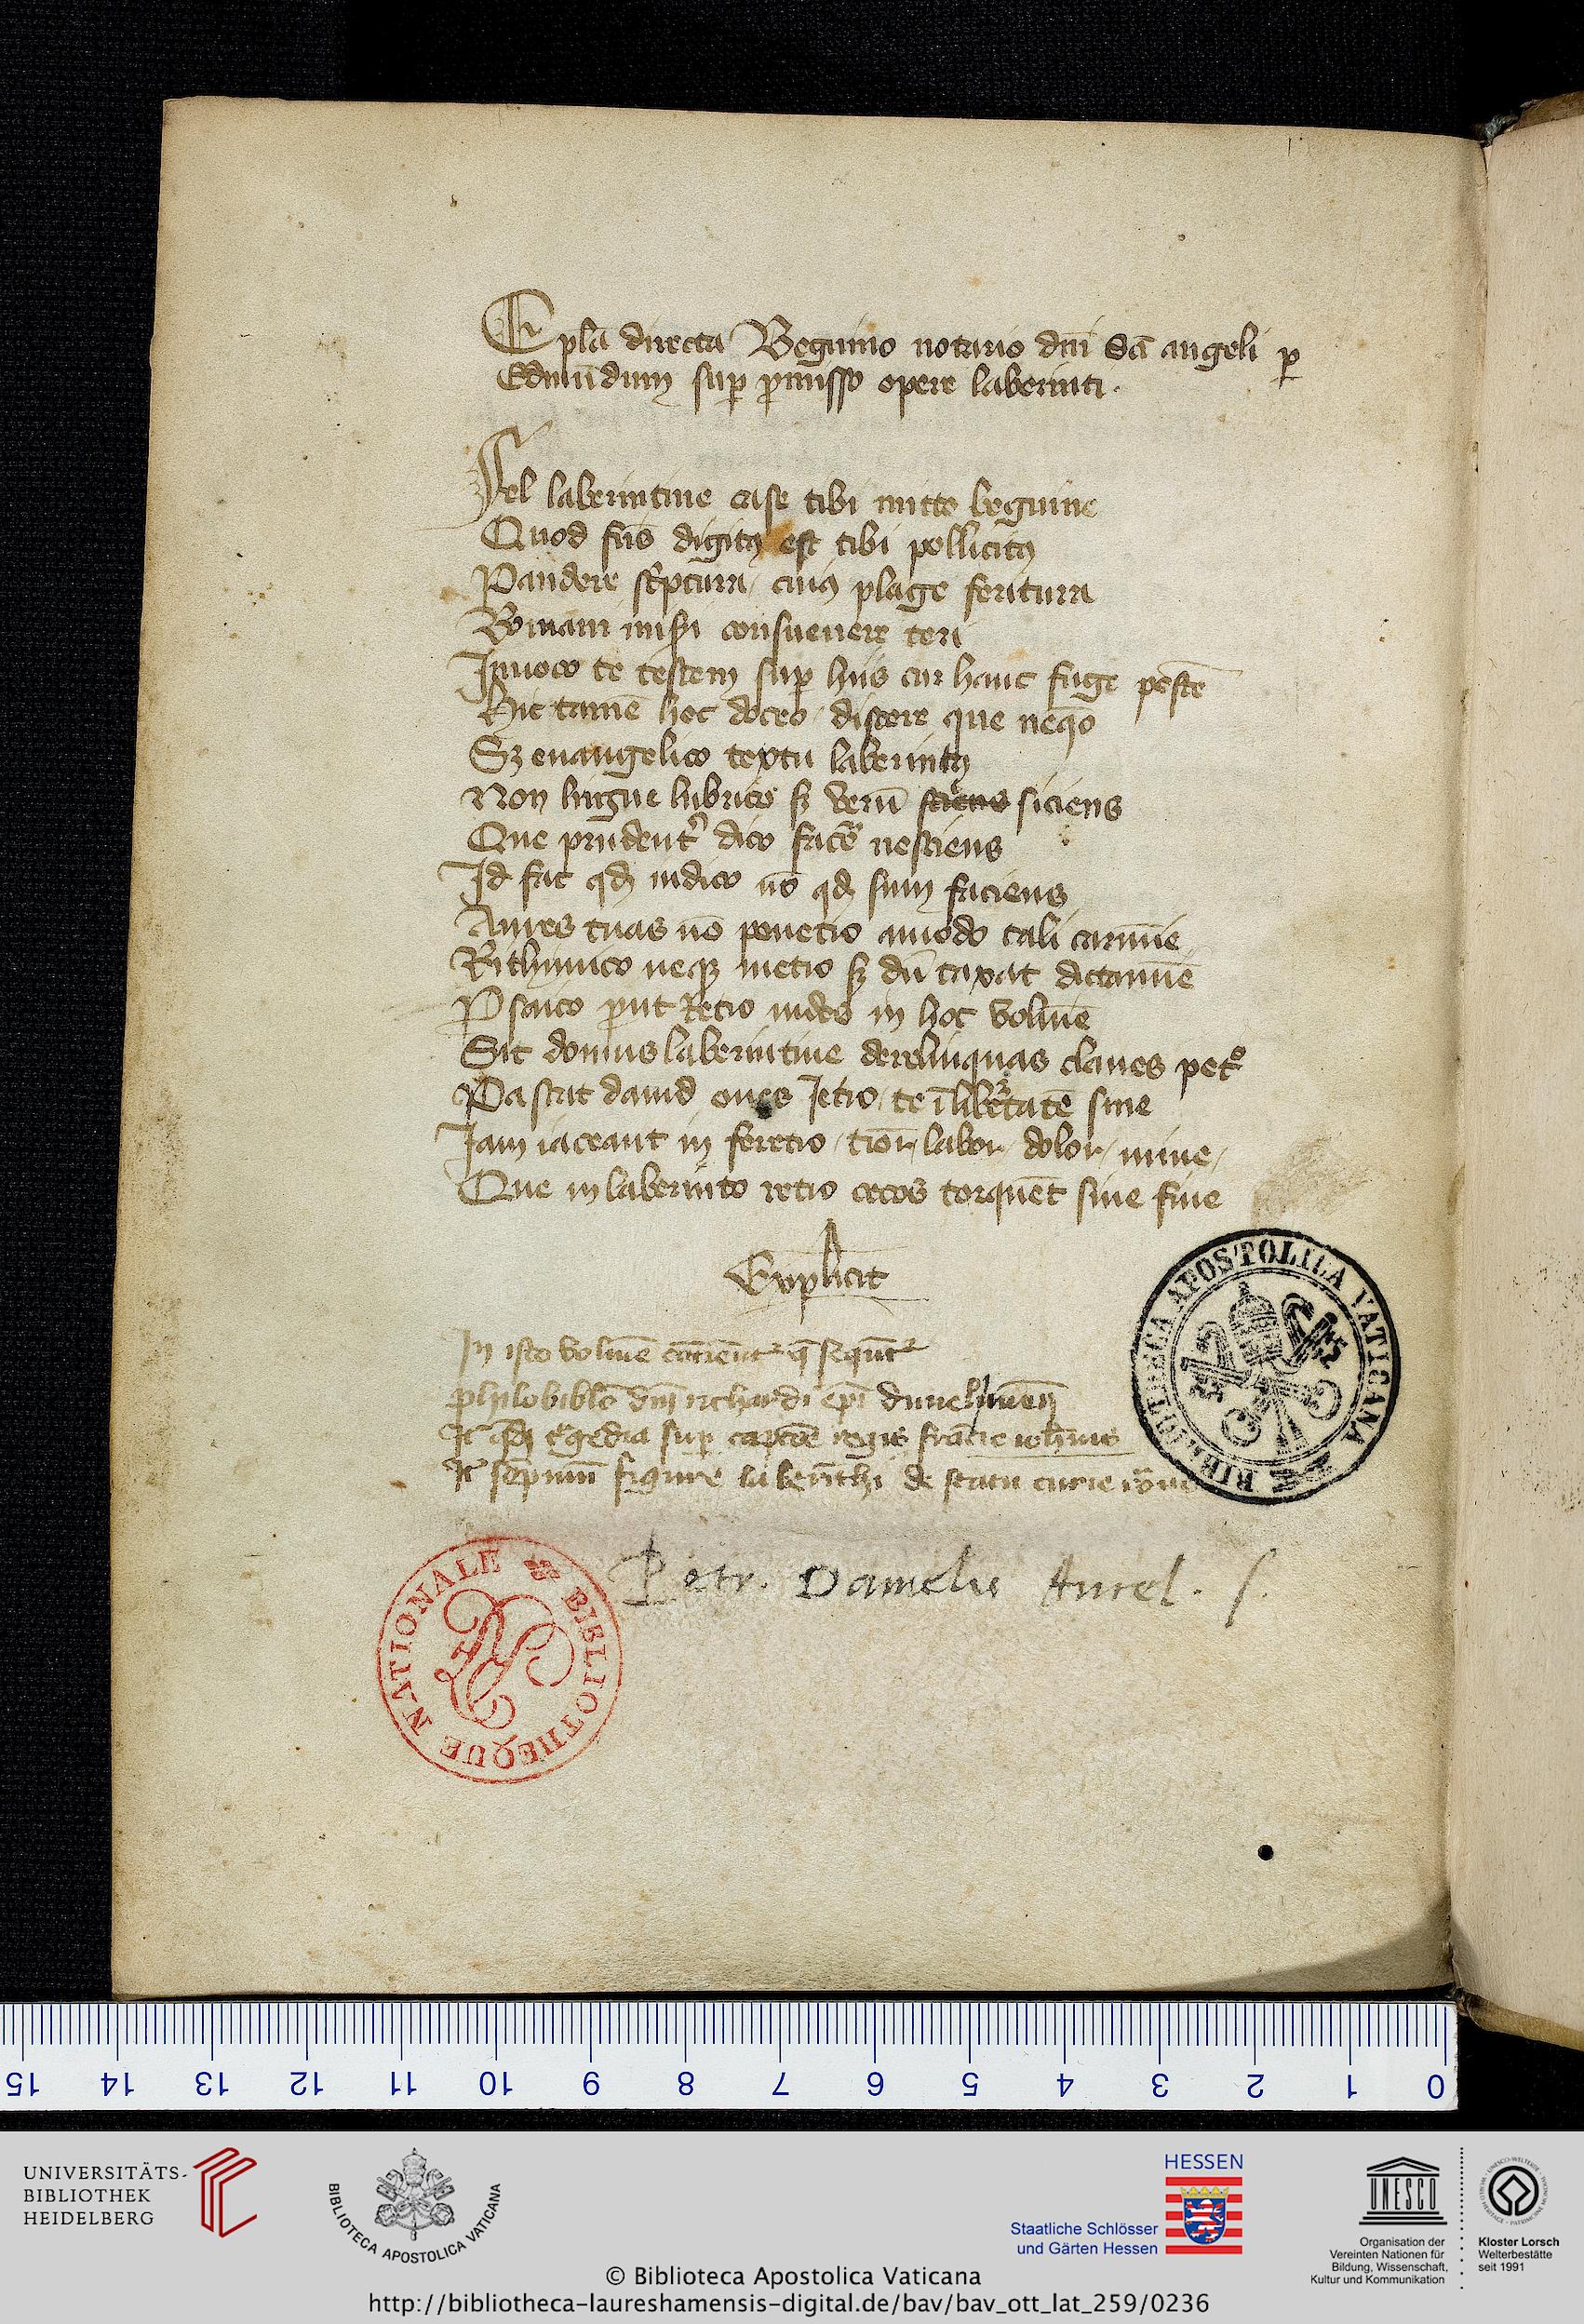 Epłā directa Beguino notario dn̄i Sā angeli ꝑ
Edmūdum suꝑ p̄misso opere laberinti.
Fel laberintine case tibi mitto beguine
Quod sūs digitꝰ est tibi pollicitꝰ
Pandere sc̄ptura / cuiꝰ plage feritura
Romani miseri consuevere teri
Invoco te testem suꝑ hiis cur hanc fuge pestē
Hic tamē hoc doceo / discere que neq̄o
Sꝫ euangelico textu laberintꝰ
Non lingue lubrico sꝫ verū sciens siciens
Que prudent̾ dico fac̾e nesciens
Id fac qd̄ indico nō qd̄ sum faciens
Aures tuas nō penetro amodo tali carmīe
Rithmico neqꝫ metro sꝫ dū taxat dictamīe
Psaico prout retro vides in hoc volūīe
Sic domus laberintine derelinquas claves petº
Pascat david oves Jetro / te ī libertatē sine
Jam iaceant in feretro / timor / labor / dolor / mine /
Que in laberinto retro cecos torquēt sine fine
Explicit
In isto volumīe cōtinent̾ q̄ sequūt̾
phylobiblō dn̄i richardi ep̄i dunelmēn̄
It̄ qd̄ t̾gedia suꝑ capcōe regis francie ioh̄nis
It̄ sc̄ptum figure laberīthi de statu curie rōne
BIBLIOTECA APOSTOLICA VATICANA
Petr. Danielis Aurel. /.
BIBLIOTHEQUE NATIONALE
15 14 13 12 11 10 9 8 7 6 5 4 3 2 1 0
UNIVERSITÄTS-
BIBLIOTHEK
HEIDELBERG
BIBLIOTECA APOSTOLICA VATICANA
HESSEN
Staatliche Schlösser
und Gärten Hessen
UNESCO
Organisation der
Vereinten Nationen für
Bildung, Wissenschaft,
Kultur und Kommunikation
Kloster Lorsch
Welterbestätte
seit 1991
© Biblioteca Apostolica Vaticana
http://bibliotheca-laureshamensis-digital.de/bav/bav_ott_lat_259/0236